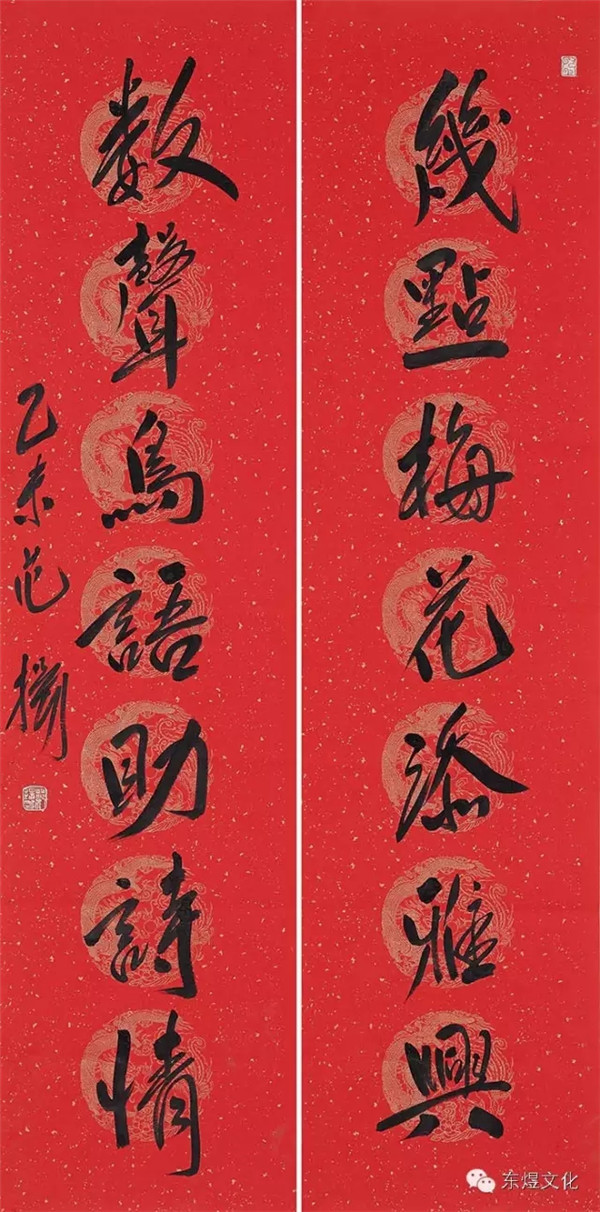 幾點梅花添雅興
数聲鳥語助詩情
乙未范
东煜文化